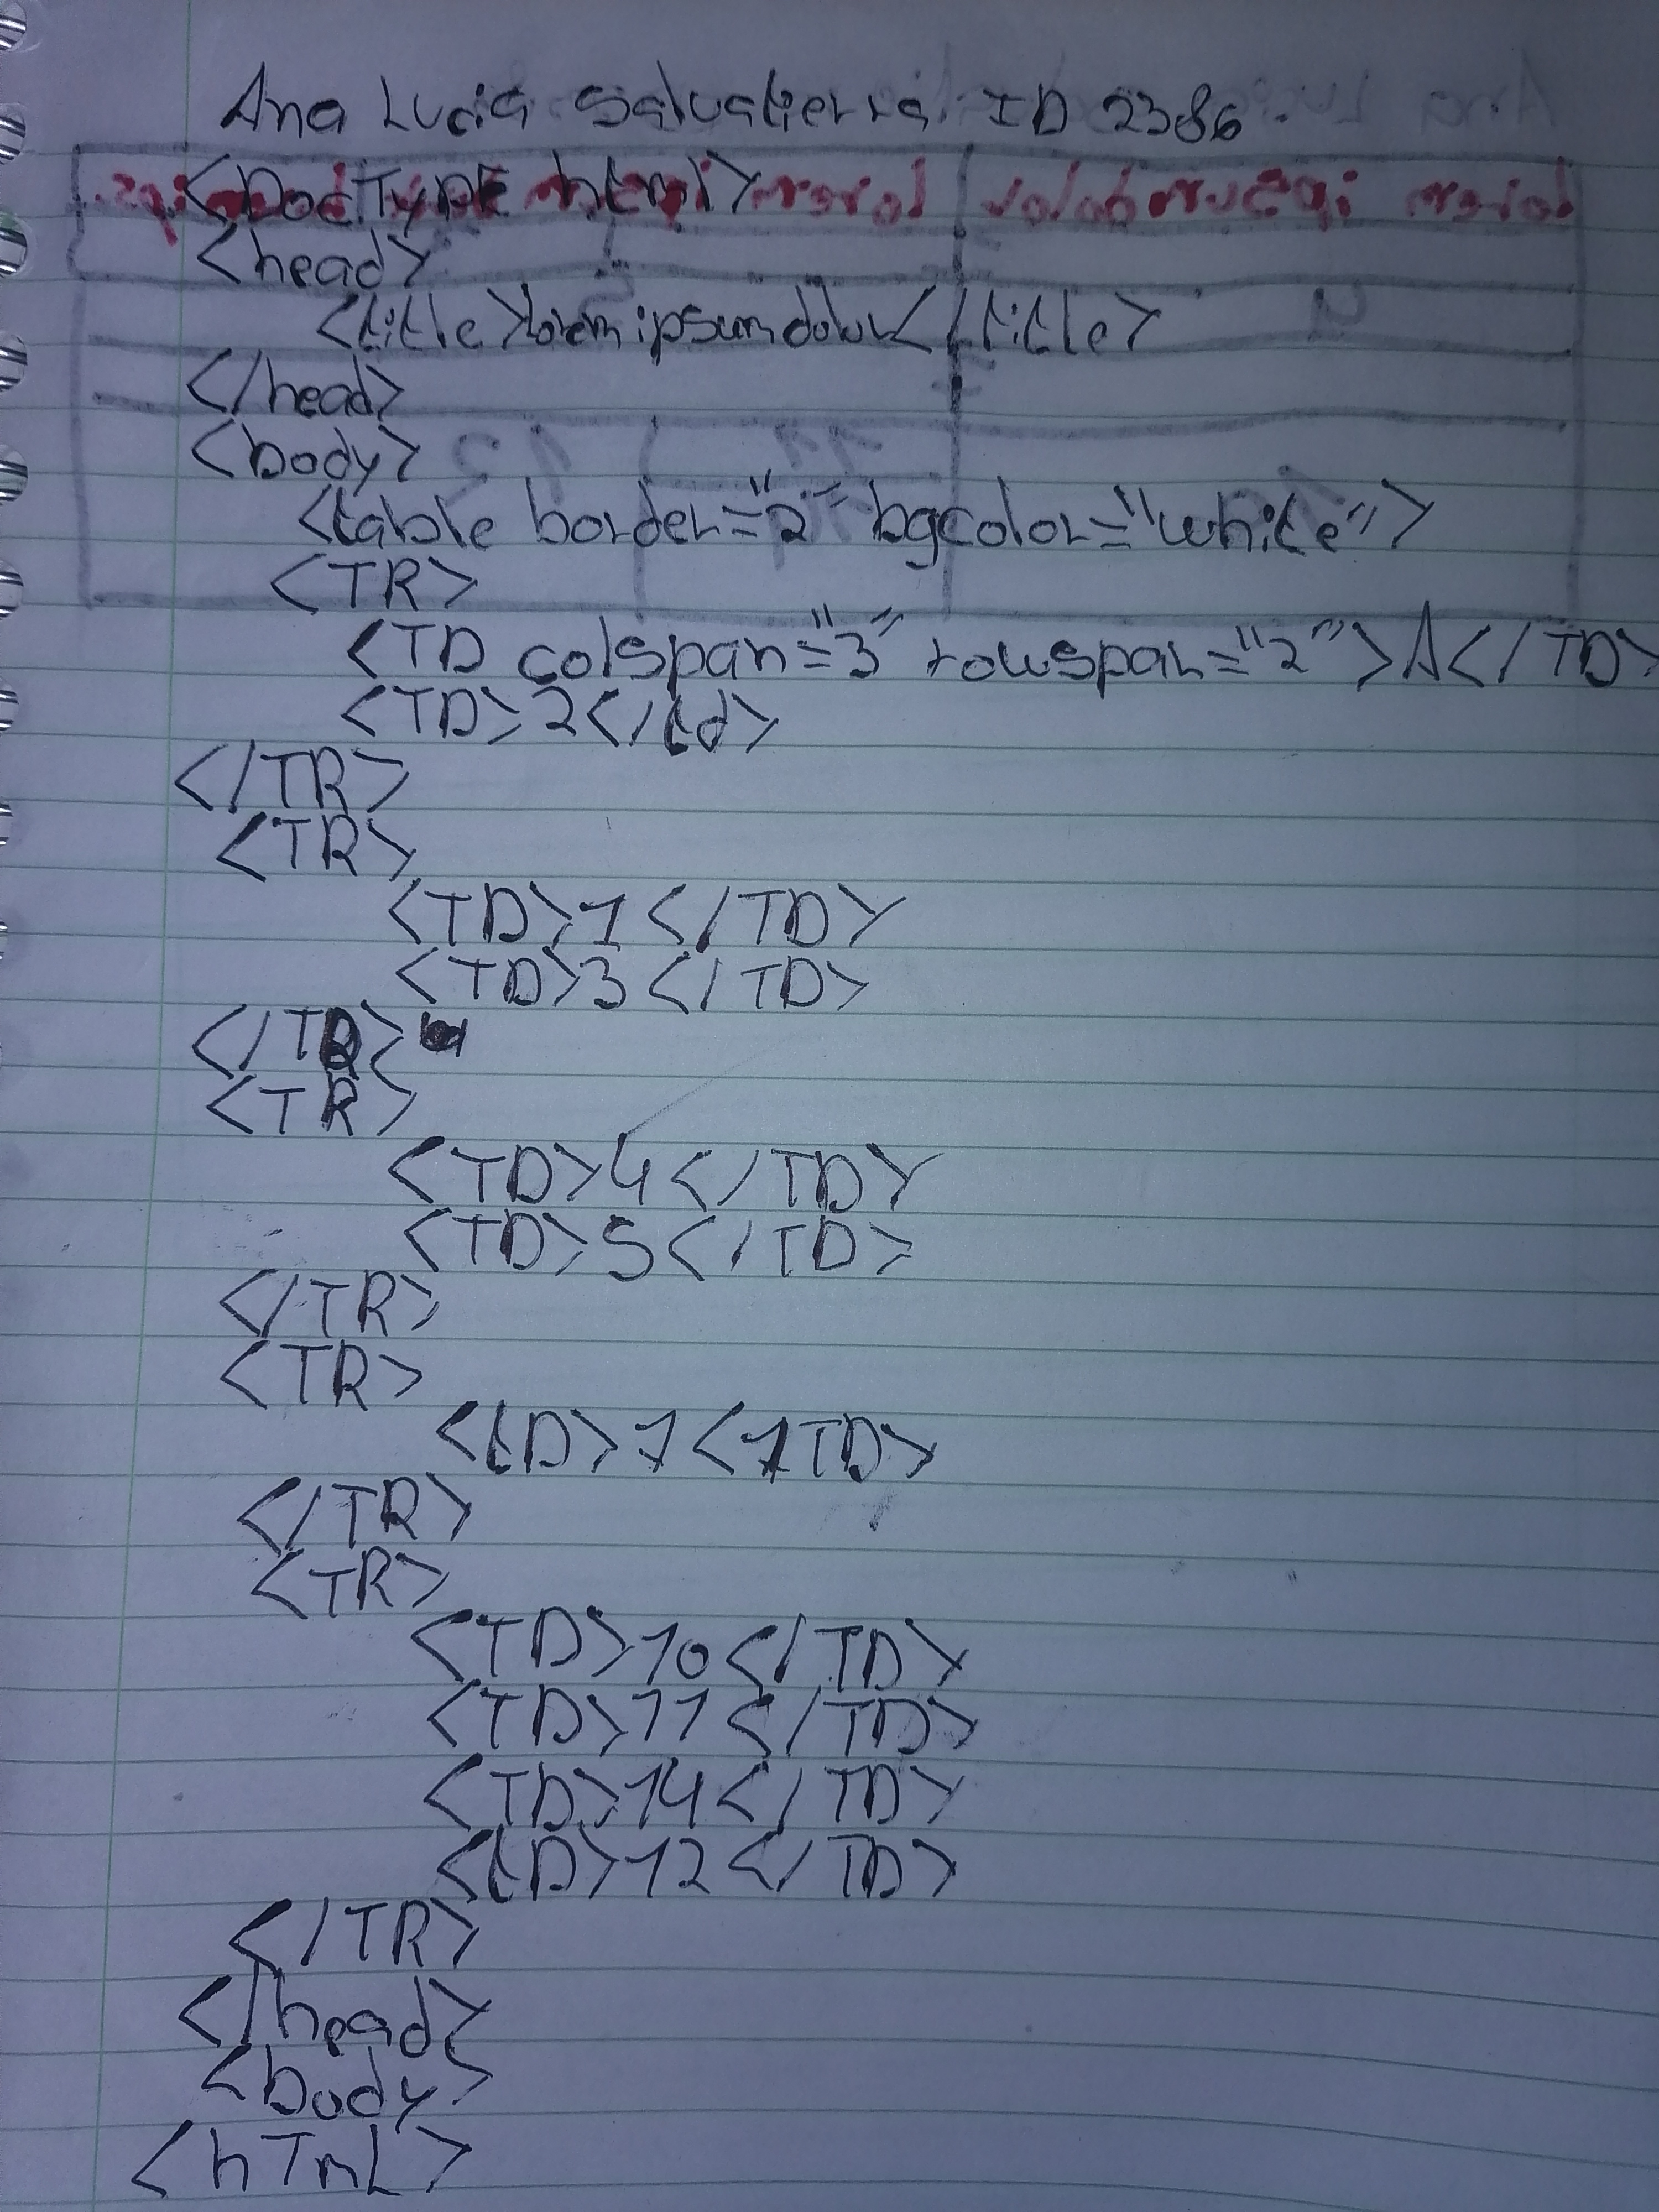 Ana Lucia Salvatierra ID 2386.
<DocTypE html>
<head>
<title>lorem ipsum dolor</title>
</head>
<body>
<table border="2" bgcolor="white">
<TR>
<TD colspan="3" rowspan="2">A</TD>
<TD>2</td>
</TR>
<TR>
<TD>1</TD>
<TD>3</TD>
</TR>
<TR>
<TD>4</TD>
<TD>5</TD>
</TR>
<TR>
<tD>7</TD>
</TR>
<TR>
<TD>10</TD>
<TD>11</TD>
<TD>14</TD>
<tD>12</TD>
</TR>
</head>
<body>
<hTmL>